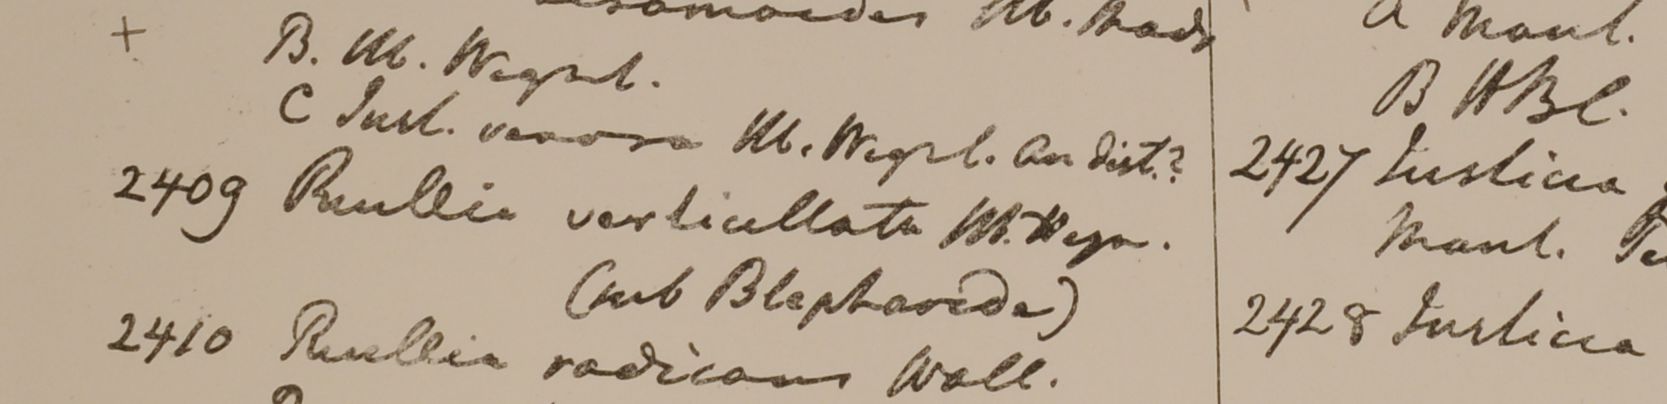 Hb. Mad
+ B. Hb. Wight.
C Just. venosa Hb. Wight. an dist.?
2409 Ruellia verticillata Hb. Heyn.
(sub Blepharide)
2410 Ruellia radicans Wall.
a Maul.
B HBC.
2427 Justicia
Maul.
2428 Justicia